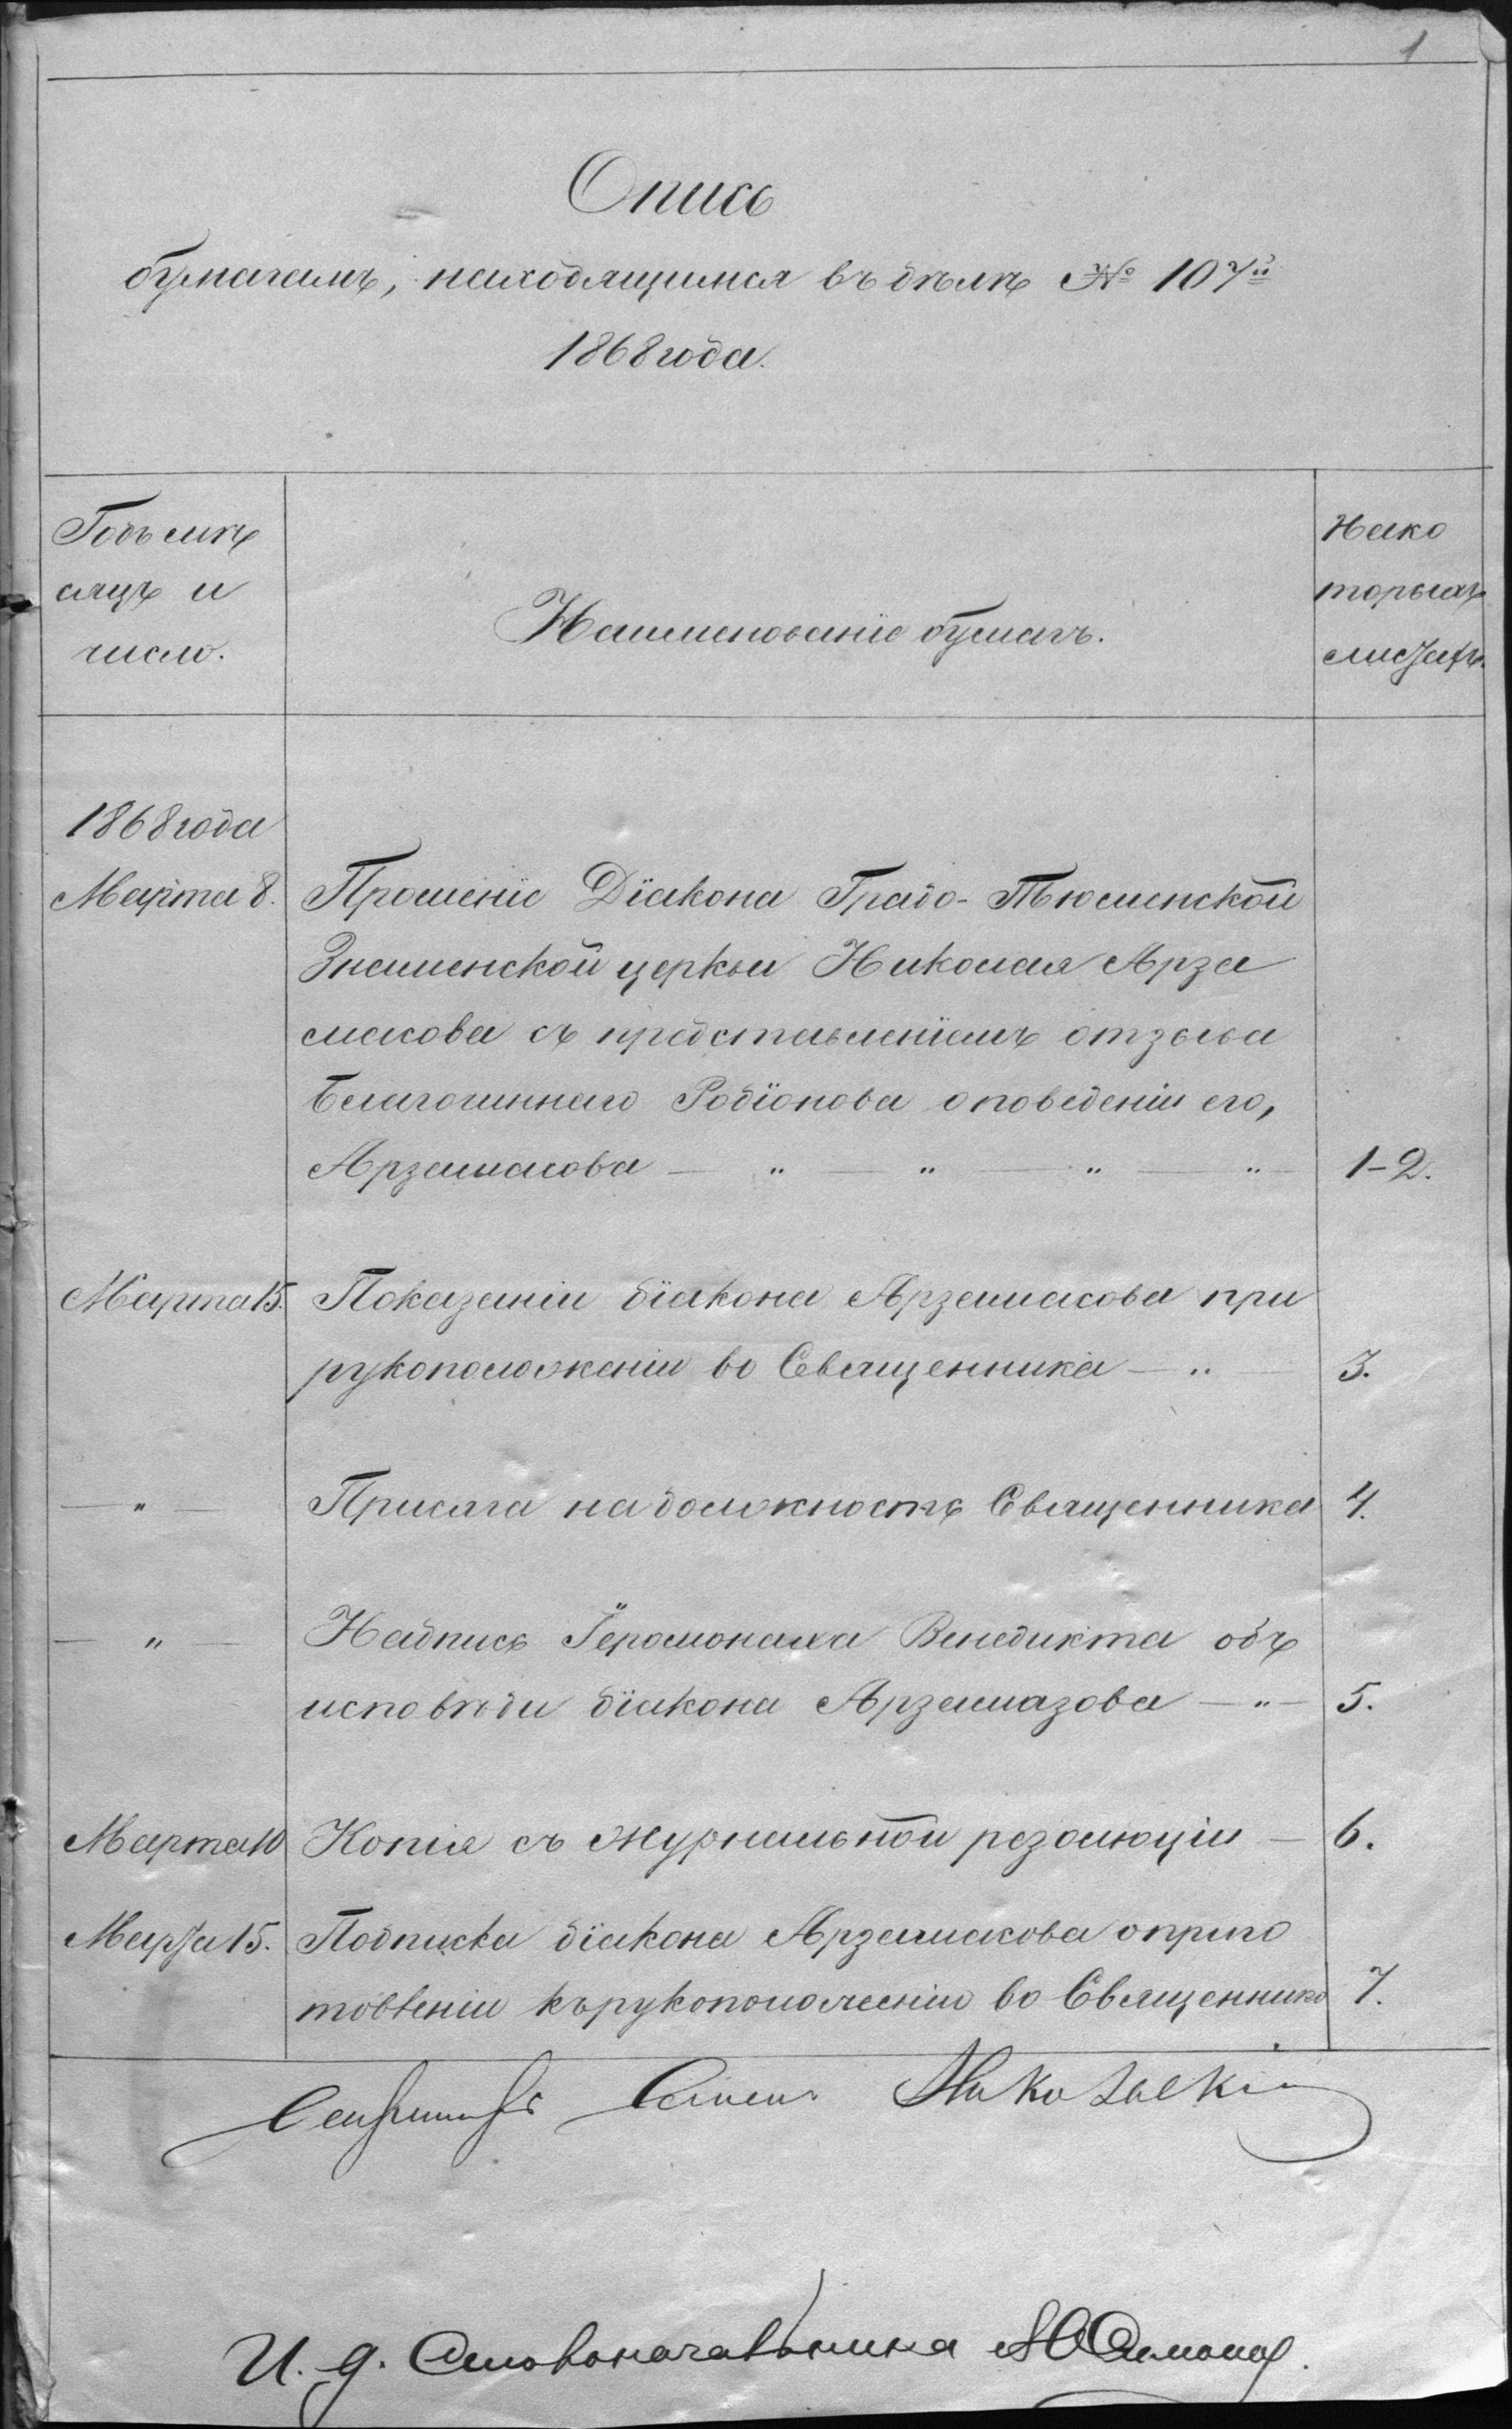 1
Опись
бумагамъ, находящимся въ дѣлѣ № 107й
1868 года.
Годъ мѣ
сяцъ и
число.
Наименованіе бумагъ.
На ко
торыхъ
листахъ.
1868 года
Марта 8. Прошеніе Діакона Градо-Тюменской
Знаменской церкви Николая Арза
масова съ представленіемъ отзыва
Благочиннаго Родіонова о поведеніи его,
Арзамасова — „ — „ — „ — „ 1-2.
Марта 15. Показаніи діакона Арзамасова при
рукоположеніи во Священника — „ — 3.
— „ — Присяга на должность Священника 4.
— „ — Надпись Іеромонаха Венедикта объ
исповѣди діакона Арзамазова — „ — 5.
Марта 10 Копія съ журнальной резолюціи — 6.
Марта 15. Подписка діакона Арзамасова о приго
товленіи къ рукоположенію во Священника 7.
И. д. Столоначальника